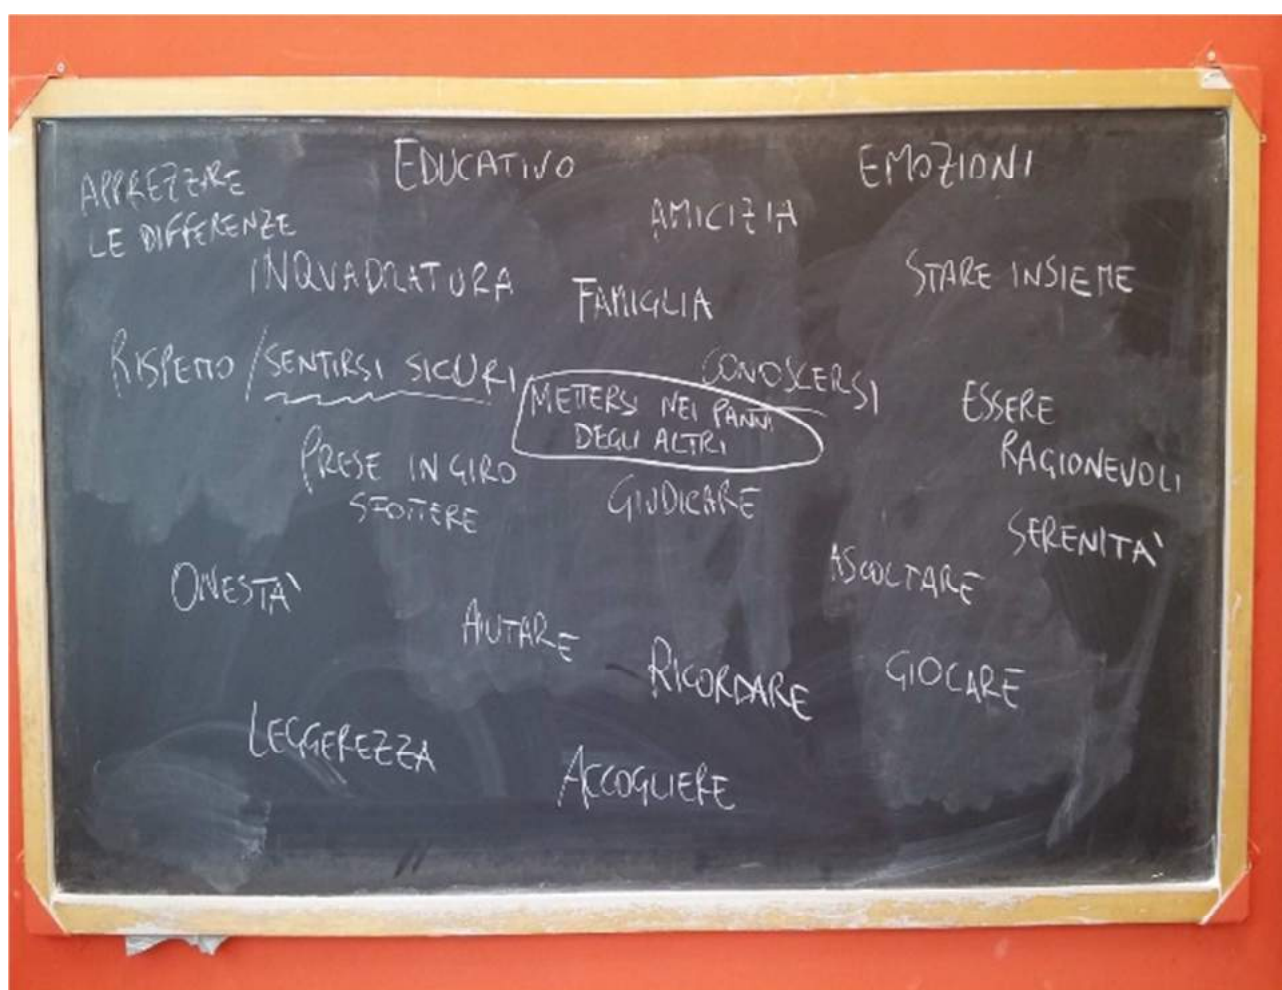 EDUCATIVO
EMOZIONI
APPREZZARE
LE DIFFERENZE
AMICIZIA
INQUADRATURA
FAMIGLIA
STARE INSIEME
RISPETTO / SENTIRSI SICURI
CONOSCERSI
METTERSI NEI PANNI
DEGLI ALTRI
ESSERE
RAGIONEVOLI
PRESE IN GIRO
SFOTTERE
GIUDICARE
SERENITA'
ONESTA'
ASCOLTARE
AIUTARE
RICORDARE
GIOCARE
LEGGEREZZA
ACCOGLIERE